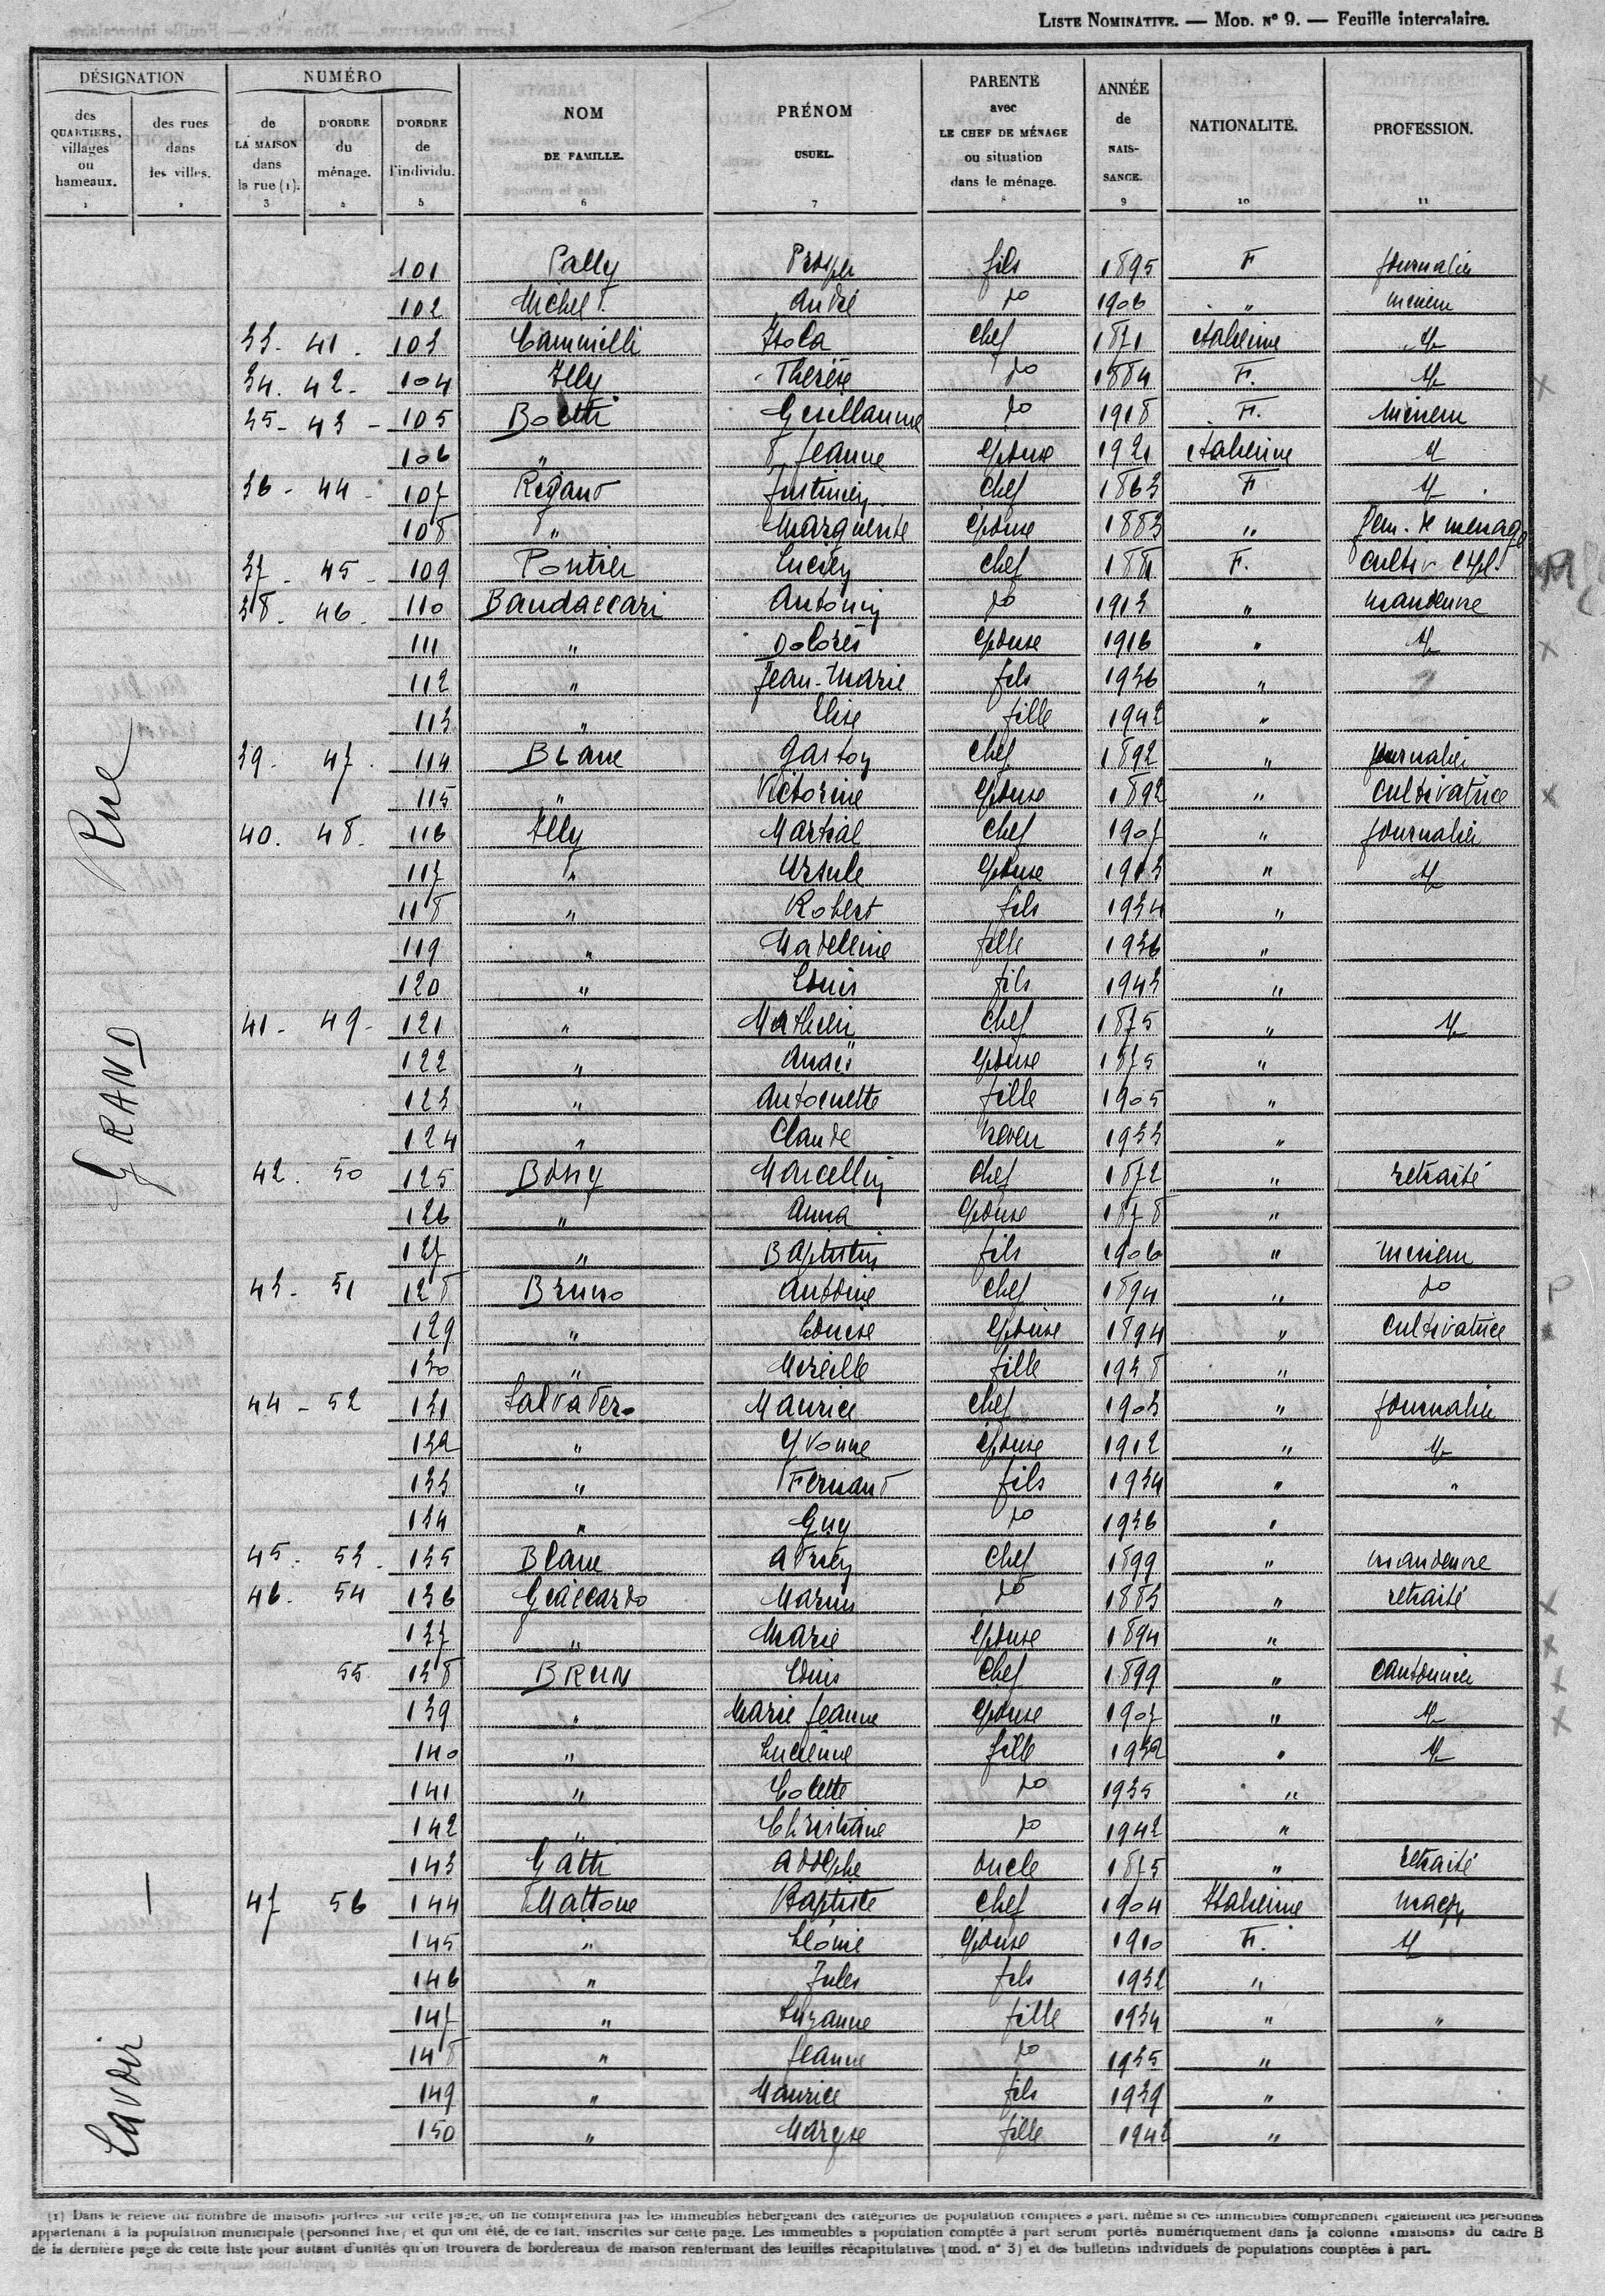 LISTE NOMINATIVE. — MOD. N° 9. — Feuille intercalaire.
DÉSIGNATION NUMÉRO
des QUARTIERS, villages ou hameaux. 1
des rues dans les villes. 2
de LA MAISON dans la rue (1). 3
D'ORDRE du ménage. 4
D'ORDRE de l'individu. 5
NOM DE FAMILLE. 6
PRÉNOM USUEL. 7
PARENTÉ avec LE CHEF DE MÉNAGE ou situation dans le ménage. 8
ANNÉE de NAIS-SANCE. 9
NATIONALITÉ. 10
PROFESSION. 11
GRAND Rue
101 Pally Prosper fils 1895 F journalier
102 Michel André do 1906 " mineur
33. 41. 103 Cammilli Isola chef 1871 italienne
34. 42. 104 Illy Thérèse do 1884 F.
35. 43. 105 Boetti Guillaume do 1918 F. mineur
106 " Jeanne épouse 1921 italienne
36. 44. 107 Rigaud Justinien chef 1863 F
108 " Marguerite épouse 1883 " fem. de ménage
37. 45. 109 Pontier Lucien chef 1881 F. cultiv. expl.
38. 46. 110 Baudaccari Antonin do 1913 " manoeuvre
111 " Dolorès épouse 1916 "
112 " Jean-Marie fils 1936 "
113 " Elise fille 1942 "
39. 47. 114 Blanc Gaston chef 1892 " journalier
115 " Victorine épouse 1892 " cultivatrice
40. 48. 116 Illy Martial chef 1907 " journalier
117 " Ursule épouse 1913 "
118 " Robert fils 1934 "
119 " Madeleine fille 1936 "
120 " Louis fils 1943 "
41. 49. 121 " Mathieu chef 1875 "
122 " Anaïs épouse 1875 "
123 " Antoinette fille 1905 "
124 " Claude neveu 1933 "
42. 50 125 Bony Marcellin chef 1872 " retraité
126 " Anna épouse 1878 "
127 " Baptistin fils 1906 " mineur
43. 51 128 Bruno Antoine chef 1894 " do
129 " Louise épouse 1894 " cultivatrice
130 " Mireille fille 1938 "
44. 52 131 Salvadero Maurice chef 1903 " journalier
132 " Yvonne épouse 1912 "
133 " Fernand fils 1934 " "
134 " Guy do 1936 "
45. 53. 135 Blanc Adrien chef 1899 " manoeuvre
46. 54 136 Giaccardo Marius do 1883 " retraité
137 " Marie épouse 1894 "
55 138 BRUN Louis chef 1899 " cantonnier
139 " Marie Jeanne épouse 1907 "
140 " Lucienne fille 1932 "
141 " Colette do 1935 "
142 " Christiane do 1942 "
143 Gatti Adolphe oncle 1875 " retraité
Lavoir
47 56 144 Mattone Baptiste chef 1904 Italienne maçon
145 " Léonie épouse 1910 F.
146 " Jules fils 1932 "
147 " Suzanne fille 1934 " "
148 " Jeanne do 1935 "
149 " Maurice fils 1939 "
150 " Maryse fille 1942 "
(1) Dans le relevé du nombre de maisons portées sur cette page, on ne comprendra pas les immeubles hébergeant des catégories de population comptées à part, même si ces immeubles comprennent également des personnes
appartenant à la population municipale (personnel fixe) et qui ont été, de ce fait, inscrites sur cette page. Les immeubles à population comptée à part seront portés numériquement dans la colonne «maisons» du cadre B
de la dernière page de cette liste pour autant d'unités qu'on trouvera de bordereaux de maison renfermant des feuilles récapitulatives (mod. n° 3) et des bulletins individuels de populations comptées à part.